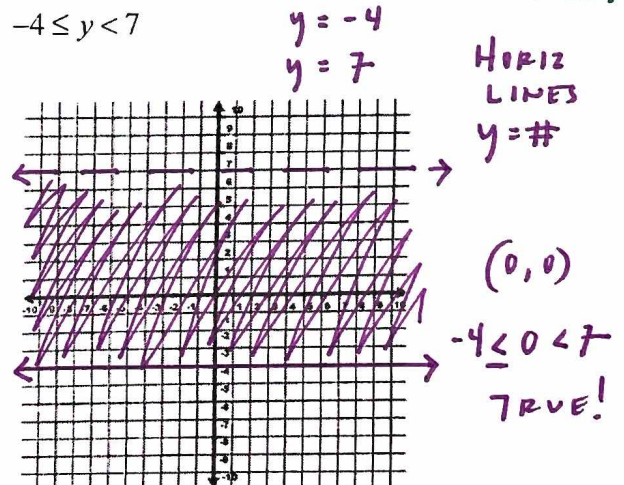 −4 ≤ y < 7
y = -4
y = 7
HORIZ
LINES
y = #
(0,0)
-4 ≤ 0 < 7
TRUE!
10
9
8
7
6
5
4
3
2
1
-10
-9
-8
1
2
3
4
5
6
7
8
9
10
-4
-5
-6
-7
-8
-9
-10